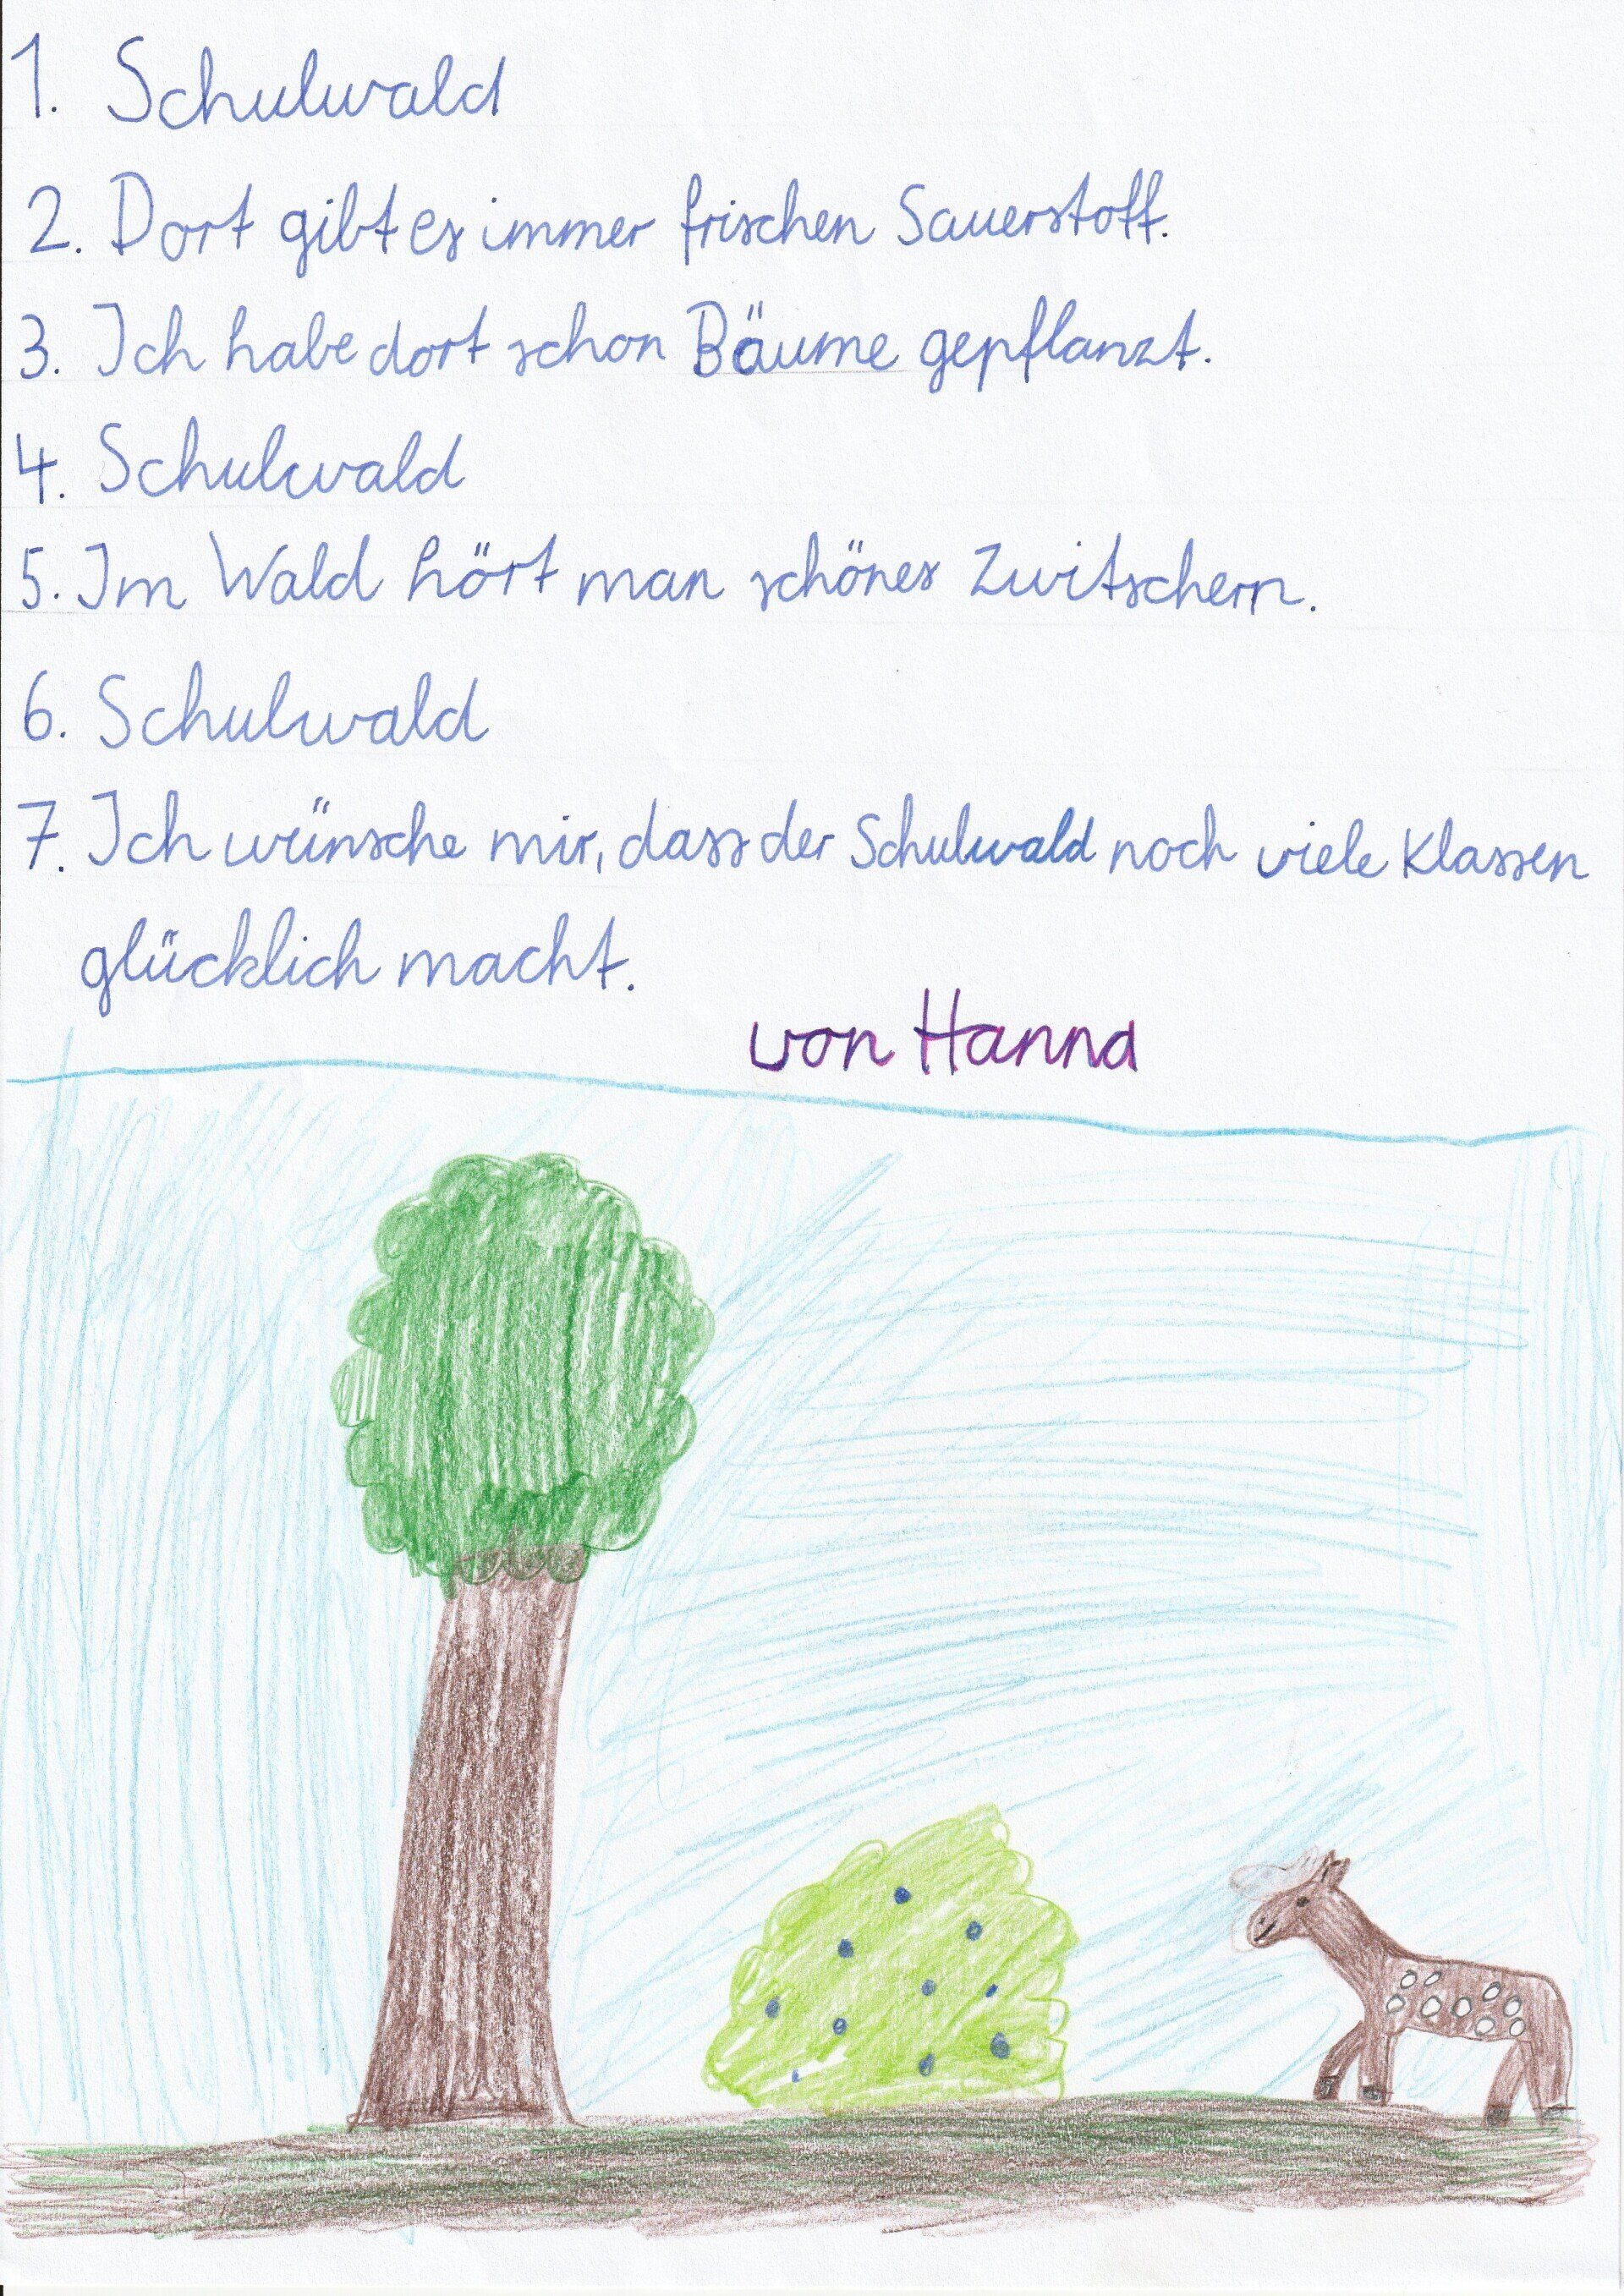 1. Schulwald
2. Dort gibt es immer frischen Sauerstoff.
3. Ich habe dort schon Bäume gepflanzt.
4. Schulwald
5. Im Wald hört man schönes Zwitschern.
6. Schulwald
7. Ich wünsche mir, dass der Schulwald noch viele Klassen
glücklich macht.
von Hanna